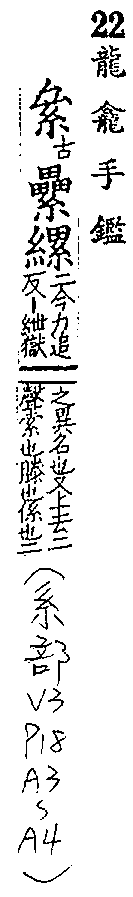 22
龍龕手鑑
絫古纍縲二今力追
反丨紲獄
之異名也又上去二
聲索也縢也係也二
(糸部
V3
P18
A3
S
A4)